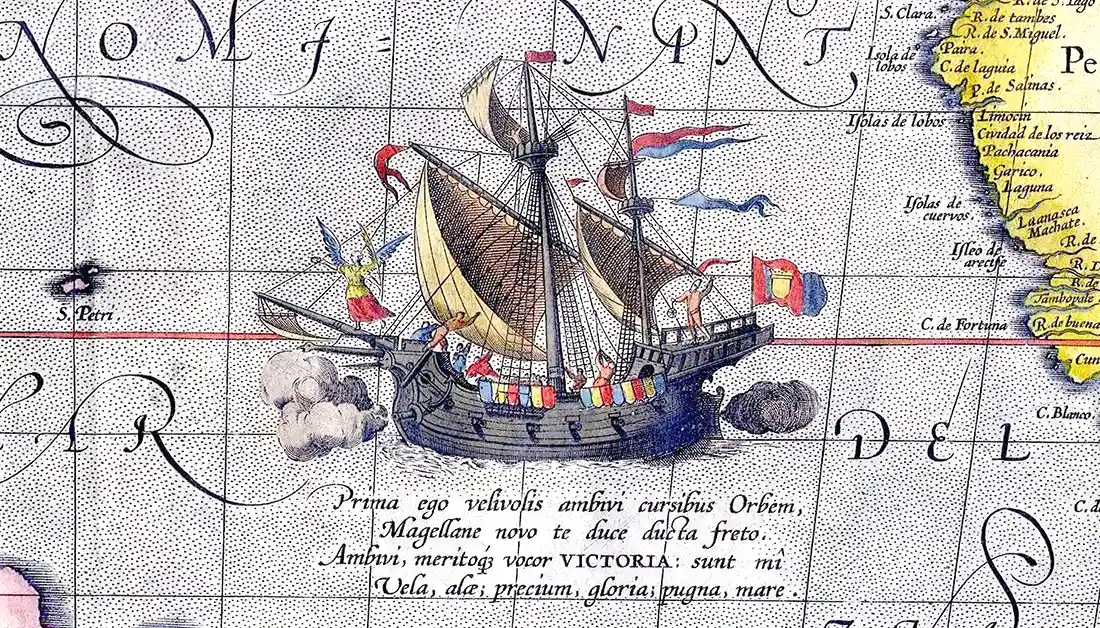 NOMI=
NANT
AR
DEL
S. Petri
Prima ego velivolis ambivi cursibus Orbem,
Magellane novo te duce ducta freto.
Ambivi, meritoq́ʒ vocor VICTORIA: sunt mî
Vela, alæ; precium, gloria; pugna, mare.
R. de S. Iago
S. Clara.
R. de tambes
R. de S. Miguel.
Paira.
Isola de lobos
C. de laguia
P. de Salinas.
Pe
Limocin
Isolas de lobos
Cividad de los reiz
Pachacania
Garico.
Laguna
Isolas de
cuervos.
Laanasca
Machate.
R. de
Isleo de
arecife
R. de
Tambopale
C. de Fortuna
R. de buena
Cun
C. Blanco.
C. d